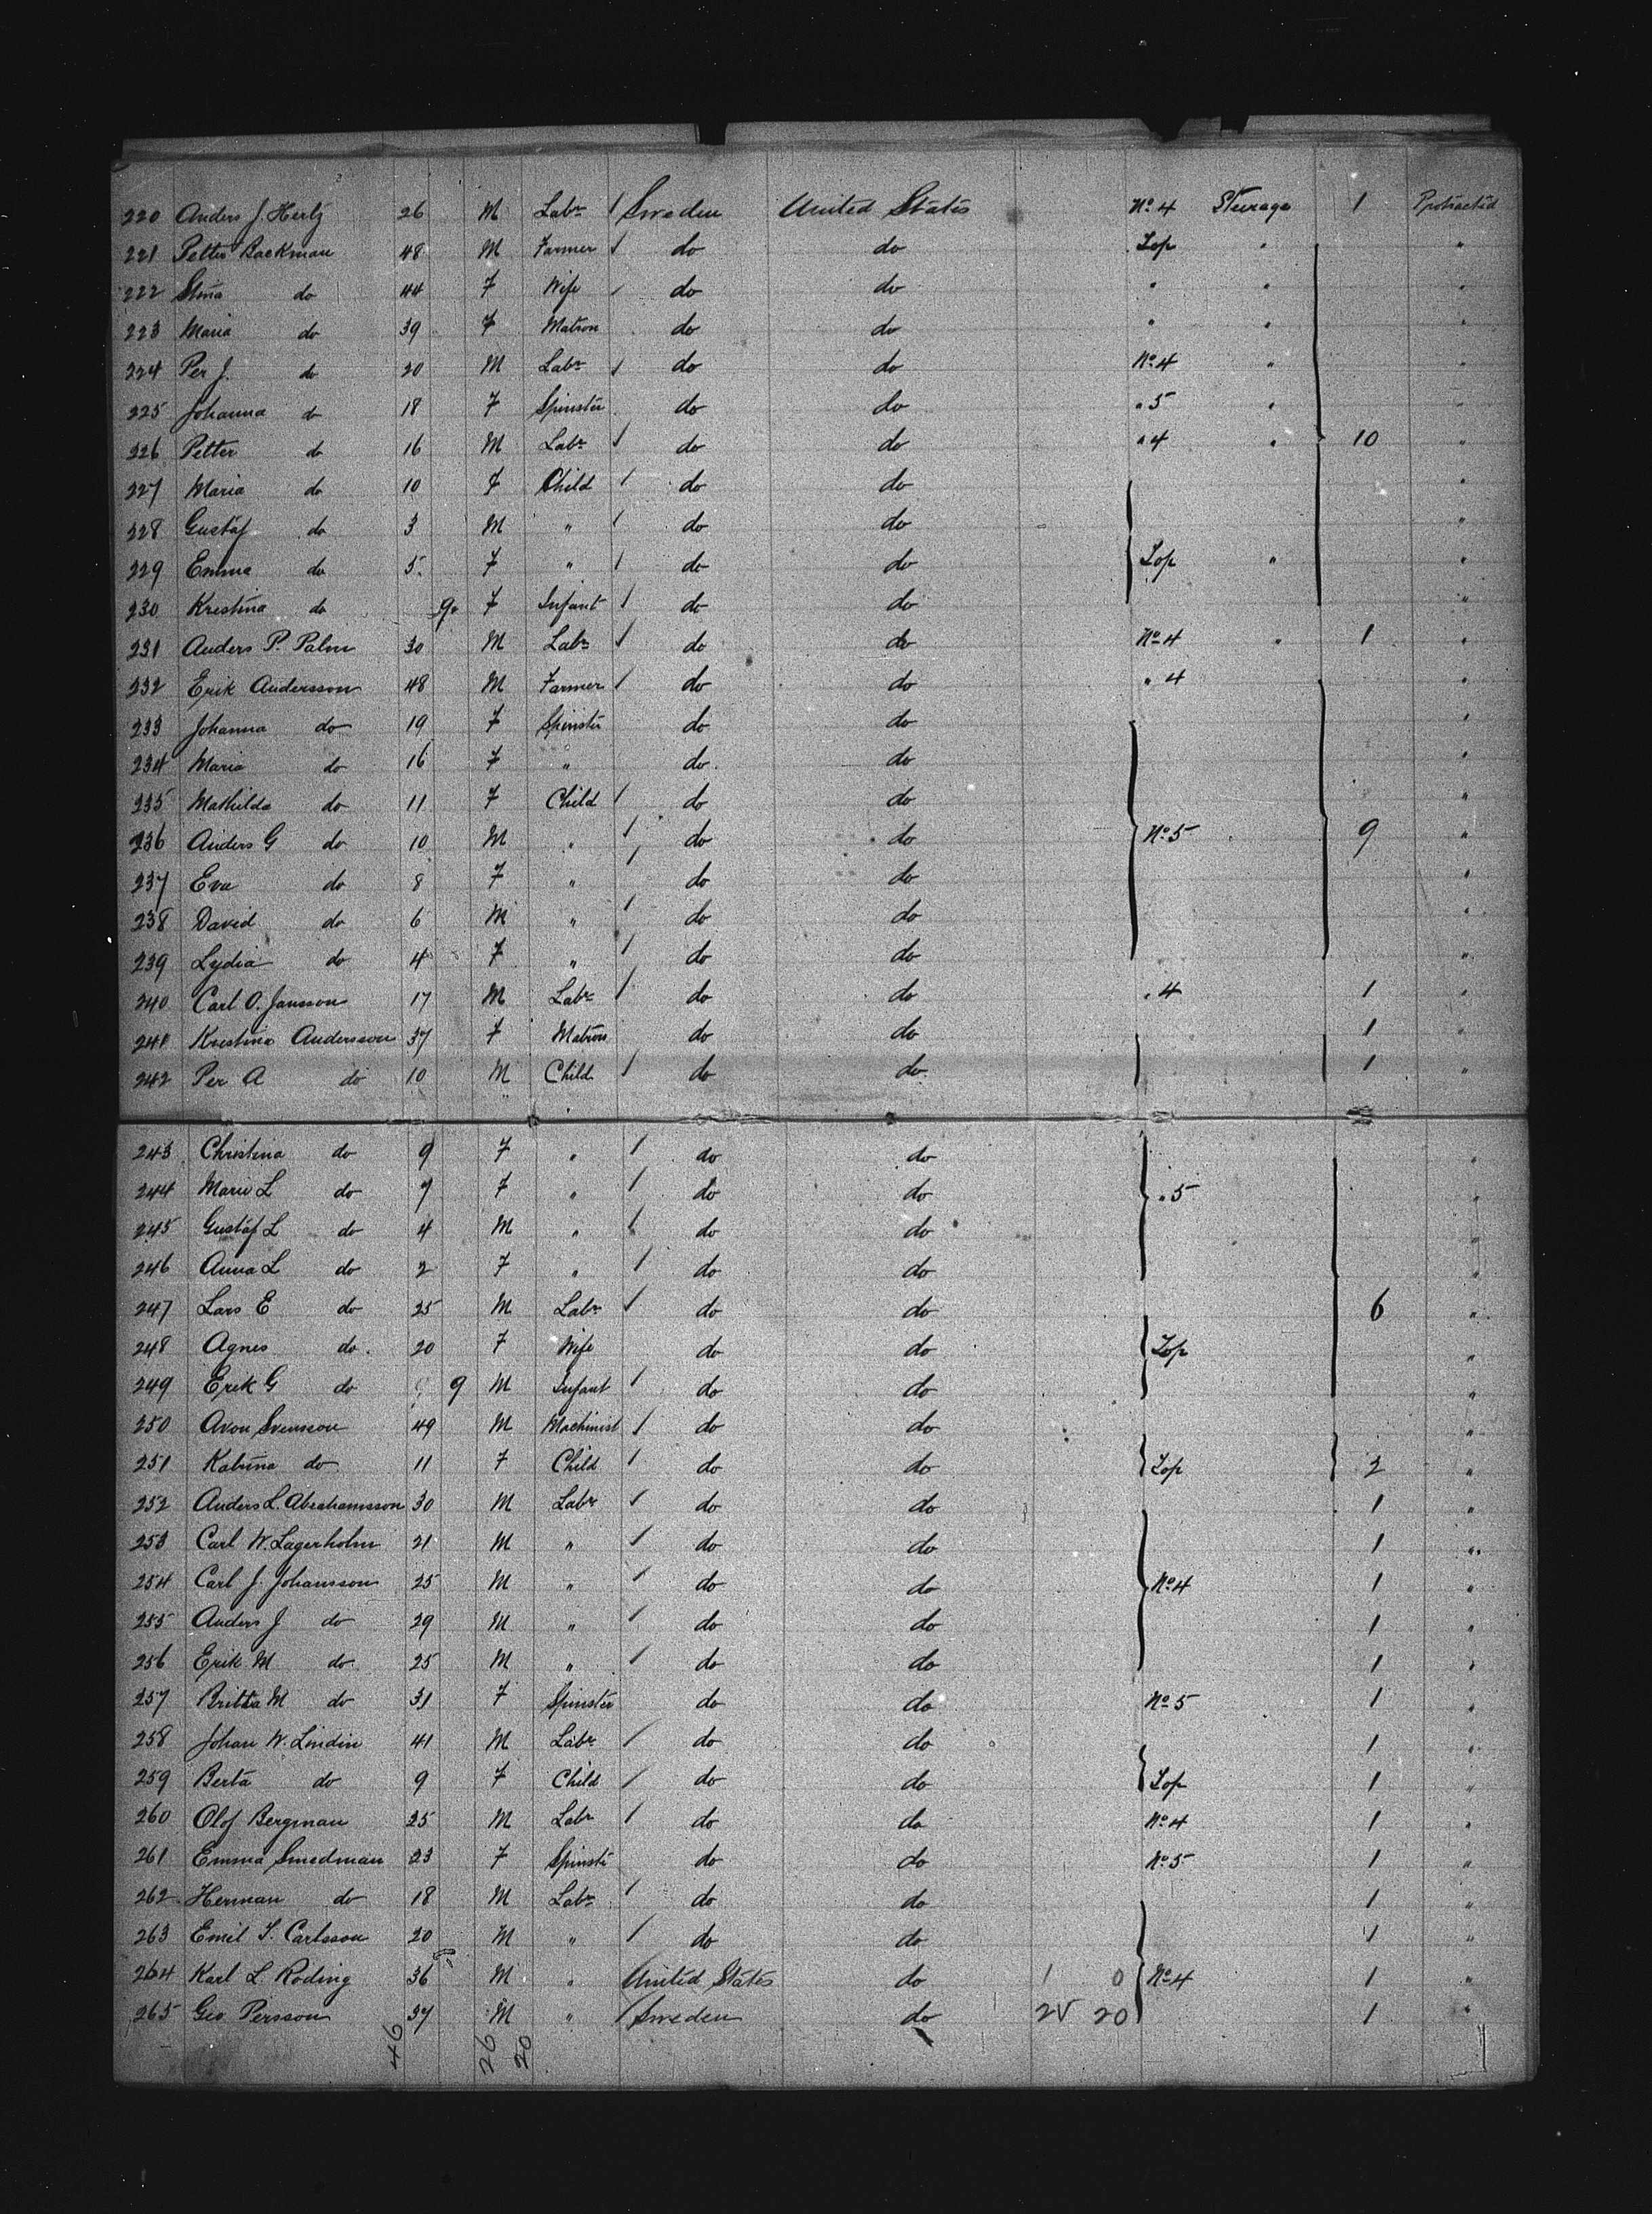 220 Anders J. Hertz 26 M Labr 1 Sweden United States No 4 Steerage 1 Protracted
221 Petter Backman 48 M Farmer 1 do do Top " "
222 Stina do 44 F Wife do do " " "
223 Maria do 39 F Matron do do " " "
224 Per J. do 20 M Labr 1 do do No 4 " "
225 Johanna do 18 F Spinster do do " 5 " "
226 Petter do 16 M Labr 1 do do " 4 " 10 "
227 Maria do 10 F Child 1 do do "
228 Gustaf do 3 M " 1 do do "
229 Emma do 5 F " 1 do do Top " "
230 Kristina do 9 F Infant 1 do do "
231 Anders P. Palm 30 M Labr 1 do do No 4 " 1 "
232 Erik Andersson 48 M Farmer 1 do do " 4 "
233 Johanna do 19 F Spinster do do "
234 Maria do 16 F " do do "
235 Mathilda do 11 F Child 1 do do "
236 Anders G do 10 M " 1 do do No 5 9 "
237 Eva do 8 F " 1 do do "
238 David do 6 M " 1 do do "
239 Lydia do 4 F " 1 do do "
240 Carl O. Jansson 17 M Labr 1 do do " 4 1 "
241 Kristina Andersson 37 F Matron do do 1 "
242 Per A do 10 M Child 1 do do 1 "
243 Christina do 9 F " 1 do do "
244 Marie L do 7 F " 1 do do " 5 "
245 Gustaf L do 4 M " 1 do do "
246 Anna L do 2 F " 1 do do "
247 Lars E do 25 M Labr 1 do do 6 "
248 Agnes do 20 F Wife do do Top "
249 Erik G do 9 M Infant 1 do do "
250 Aron Svensson 49 M Machinist 1 do do "
251 Katrina do 11 F Child 1 do do Top 2 "
252 Anders L. Abrahamsson 30 M Labr 1 do do 1 "
253 Carl W. Lagerholm 21 M " 1 do do 1 "
254 Carl J. Johansson 25 M " 1 do do No 4 1 "
255 Anders J do 29 M " 1 do do 1 "
256 Erik M do 25 M " 1 do do 1 "
257 Britta M do 31 F Spinster do do No 5 1 "
258 Johan W. Lindin 41 M Labr 1 do do 1 "
259 Berta do 9 F Child 1 do do Top 1 "
260 Olof Bergman 25 M Labr 1 do do No 4 1 "
261 Emma Smedman 23 F Spinstr do do No 5 1 "
262 Herman do 18 M Labr 1 do do 1 "
263 Emil T. Carlsson 20 M " 1 do do 1 "
264 Karl L Roding 36 M " United States do 1 0 No 4 1 "
265 Geo Persson 37 M " 1 Sweden do 25 20 1 "
46 26 20